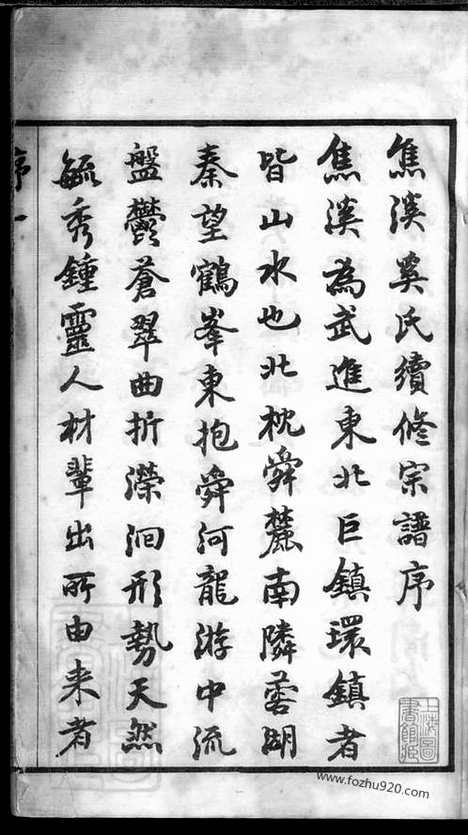 焦溪奚氏續修宗譜序
焦溪為武進東北巨鎮環鎮者
皆山水也北枕舜麓南隣蓉湖
秦望鶴峯東抱舜河龍游中流
盤鬱蒼翠曲折濴洄形勢天然
毓秀鍾靈人材輩出所由来者
序一
上海圖書館藏
http://www.fozhu920.com/